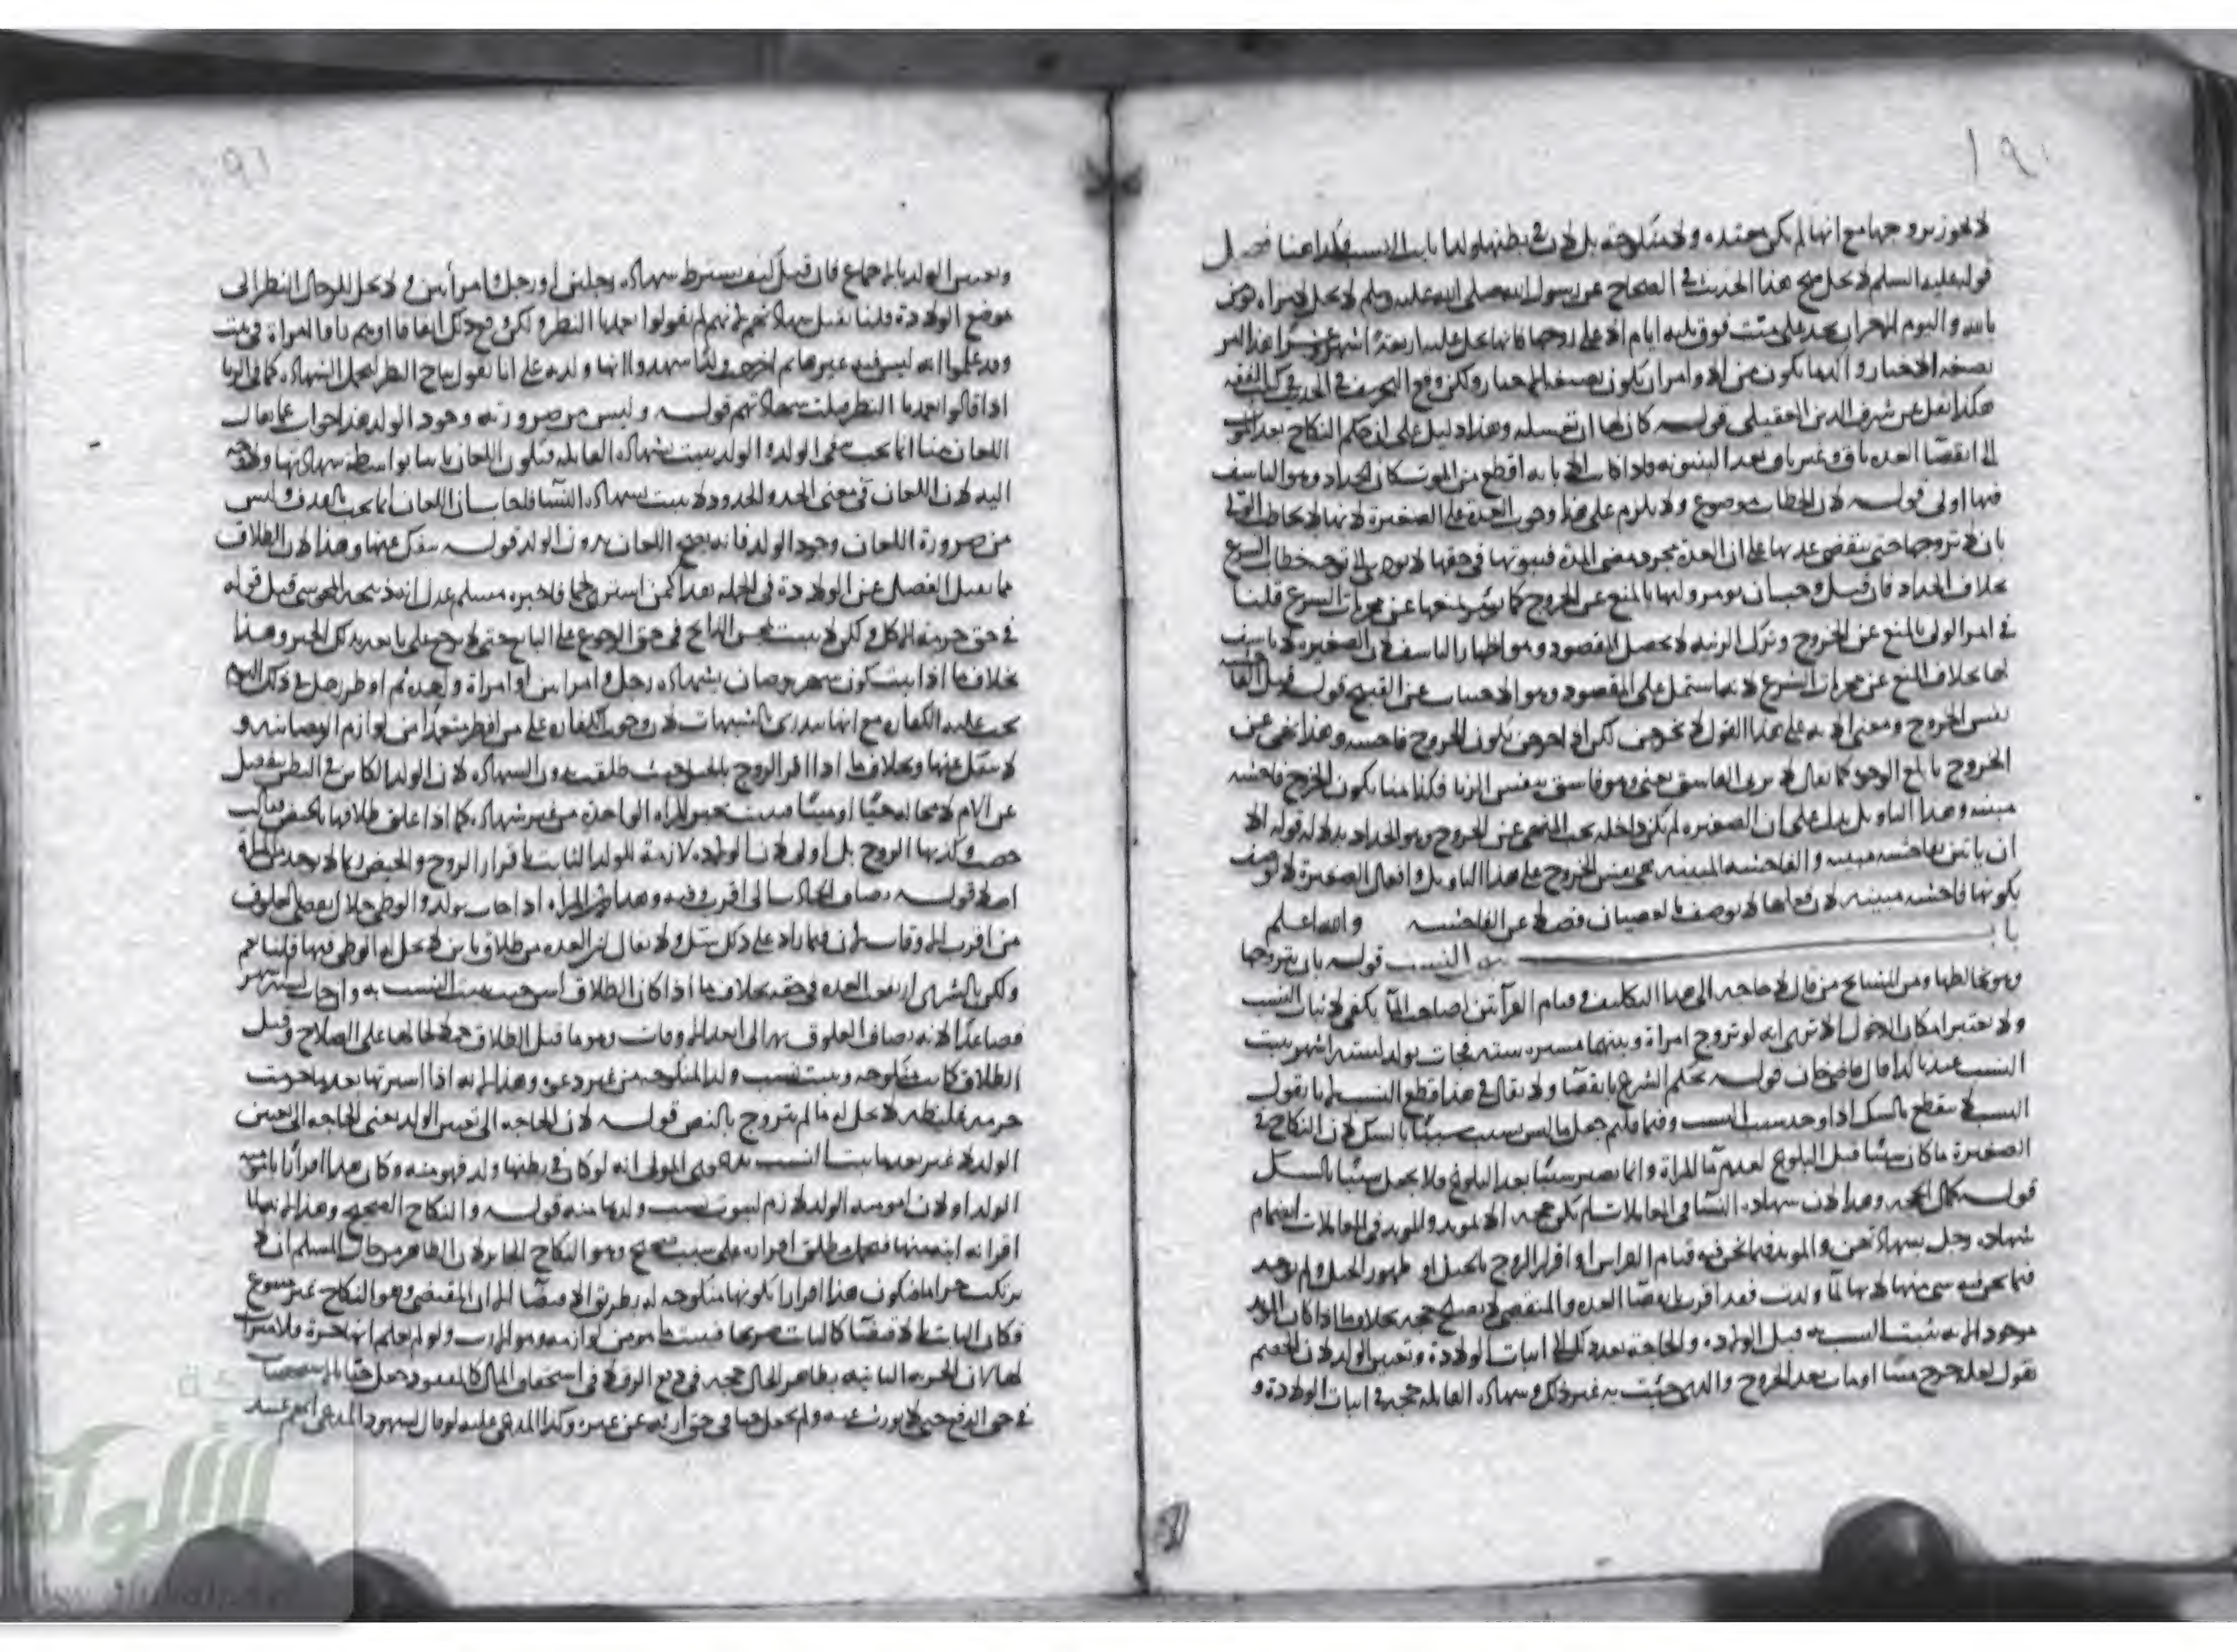 ١٩٠
لا يجوز تزوجها مع انها لم يكن معتده ولا منكوحة بل لان في بطنها ولدا ثابت النسب فكذا هنا فصل
قوله عليه السلم لا يحل صح هذا الحديث في الصحاح عن رسول الله صلى الله عليه وسلم لا يحل لامراه تومن
بالله واليوم الاخر ان تحد على ميت فوق ثلثه ايام الا على زوجها فانها تحل عليه اربعة اشهر وعشرا
بصيغه الاخبار وانما يكون من الاوامر ان يكون بصيغة الاخبار ولكن وقع التحريف في الحديث في كتب الفقه
هكذا نقل عن شرف الدين العقيلي قوله كان لها ان تغسله وهذا دليل على ان حكم النكاح بعد الموت
الى انقضا العده باق وغير باق بعد البينونه فاذا كانت الابانه اقطع من الموت كان الحداد وهو التاسف
فيها اولى قوله لان الخطاب موضوع ولا يلزم على هذا وجوب العدة على الصغيرة لانها لا تخاطب
بان لا تتزوجها حتى تنقضي عدتها على ان العدة مجرد مضي المدة فثبوتها في حقها لا يودي الى توجه خطاب الشرع
بخلاف الحداد فان قيل وجب ان يومر وليها بالمنع عن الخروج كما يومر بمنعها عن محرمات الشرع قلنا
في امر الولي بالمنع عن الخروج وترك الزينه لا يحصل المقصود وهو اظهار التاسف لان الصغيرة لا تاسف
لها بخلاف المنع عن محرمات الشرع لانها يشتمل على المقصود وهو الاجتناب عن القبيح قوله قيل الفاحشه
نفس الخروج ومعنى الايه على هذا القول لا يخرجن لكن اذا خرجن يكون الخروج فاحشه وهذا نهي عن
الخروج بابلغ الوجوه كما يقال لا يزني الفاسق يعني وهو فاسق بنفس الزنا فكذا هنا يكون الخروج فاحشه
مبينه وهذا التاويل يدل على ان الصغيره لم تكن داخله تحت النهي عن الخروج وهو الحداد بدلالة قوله الا
ان ياتين بفاحشه مبينه والفاحشه المبينه هي نفس الخروج على هذا التاويل وافعال الصغيرة لا توصف
بكونها فاحشه مبينه لان فعلها لا يوصف بالعصيان فضلا عن الفاحشه والله اعلم
باب ثبوت النسب قوله بان يتزوجها
وهو يخالطها ومن المشايخ من قال لا حاجه الى هذا التكليف قيام الفراش يكفي لاثبات النسب
ولا يعتبر امكان الدخول الا ترى انه لو تزوج امراة وبينهما مسيره سنه فجات بولد لستة اشهر يثبت
النسب عندنا كذا قال قاضيخان قوله بحكم الشرع بانقضا ولا يقال في هذا قطع النسب لانا نقول
النسب لا ينقطع بالشك اذا وجد سبب النسب وفيما قلتم جعل ما ليس بسبب سببا بالشك لان النكاح في
الصغيرة ما كان سببا قبل البلوغ لعدم ما المراة وانما يصير سببا بعد البلوغ فلا يجعل سببا بالشك
قوله كمال الحجه وهذا لان شهاده النسا في المعاملات لم يكن حجه الا بمويد والمويد في المعاملات انضمام
شهاده رجل بشهادتهن والمويد فيما نحن فيه قيام الفراش او اقرار الزوج بالحبل او ظهور الحبل ولم يوجد
فيما نحن فيه شي منها لانها لما ولدت فقد اقرت بانقضا العده والمنقضي لا يصلح حجه بخلاف ما اذا كان المويد
موجودا لانه يثبت النسب به قبل الولاده والحاجة بعد ذلك الى اثبات الولادة وتعيين الولد لان الخصم
يقول لعله خرج ميتا او مات بعد الخروج والذي جئت به غير ذلك وشهاده القابله حجه في اثبات الولادة و
وتعيين الولد بالاجماع فان قيل كيف يشترط شهاده رجلين او رجل وامراتين ولا يحل للرجال النظر الى
موضع الولادة قلنا تقبل شهادتهم لانهم لم يقولوا تعمدنا النظر ولكن وقع ذلك اتفاقا او يتم بان المراة في بيت
وقد علموا انه ليس فيه غيرها ثم خرجت ولدا شهدوا انها ولدته على انا نقول يباح النظر لتحمل الشهاده كما في الزنا
اذا قالوا تعمدنا النظر قبلت شهادتهم قوله وليس من ضرورته وجود الولد هذا جواب عما يقال
اللعان هنا انما يجب بنفي الولد والولد يثبت بشهاده القابله فيكون اللعان ثابتا بواسطة شهادتها
اليه لان اللعان في معنى الحد والحدود لا يثبت بشهاده النسا فاجاب بان اللعان انما يجب بالقذف وليس
من ضرورة اللعان وجود الولد فانه يصح اللعان بدون الولد قوله ينفك عنها وهذا لان الطلاق
مما يقبل الفصل عن الولادة في الجمله بعدا كمن اشترى لحما فاخبره مسلم عدل انه ذبيحه المجوسي قبل قوله
في حق حرمة الاكل ولكن لا يثبت في حق الرجوع على البايع حتى لا يرجع عليه بذلك الخبر وهذا
بخلاف ما اذا يثبت كون شهر رمضان بشهاده رجل وامراتين او امراة واحدة ثم افطر رجل في ذلك اليوم
يجب عليه الكفاره مع انها تندري بالشبهات لان وجوب الكفاره على من افطر متعمدا من لوازم الرمضانيه و
لا ينفك عنها وبخلاف ما اذا اقر الزوج بالحبل حيث طلقت بدون الشهاده لان الولد الكاين في البطن ينفصل
عن الام لا محاله حيا او ميتا فيثبت بخبر المراه الواحدة من غير شهاده كما اذا علق طلاقها بالحيض فقالت
حضت وكذبها الزوج بل اولى لان الولاده لازمة للولد الثابت باقرار الزوج والحيض ربما لا يوجد بالمراة
اصلا قوله يضاف الحادث الى اقرب وقته وهذا لان المراه اذا جات بولد والوطي حلال يضاف العلوق
من اقرب الاوقات لان فيما زاد على ذلك شك ولا يقال ان العده من طلاق باين لا يحل له الوطي فيها قلنا نعم
ولكن بالشرى ارتفعت العده في حقه بخلاف ما اذا كان الطلاق اثنين حيث يثبت النسب به وان جات لستة اشهر
فصاعدا لانه يضاف العلوق بها الى ابعد الاوقات وهو ما قبل الطلاق حملا لحالها على الصلاح وقبل
الطلاق كانت منكوحه ويثبت نسب ولد المنكوحه من غير دعوى وهذا لانه اذا اشتراها بعد ما حرمت
حرمه غليظه لا تحل له ما لم يتزوج بالنص قوله لان الحاجه الى تعيين الولد يعني الحاجه الى تعيين
الولد لا غير بعد ما ثبت النسب بقول المولى انه لو كان في بطنها ولد فهو منه وكان هذا اقرارا باموميه
الولد اذ لان اموميه الولد لازم لثبوت نسب ولدها منه قوله والنكاح الصحيح وهذا لانه لما
اقر انه ابنه منها فيحمل مطلق اقراره على سبب صحيح وهو النكاح الجايز لان الظاهر من حال المسلم ان لا
يرتكب حراما فيكون هذا اقرارا بكونها منكوحه له بطريق الاقتضا لان المقتضي وهو النكاح غير متنوع
فكان الثابت بالاقتضا كالثابت صريحا فيثبت ما هو من لوازمه وهو الارث ولو لم يعلم انها حرة فلا ميراث
لها لان الحريه الثابته بظاهر الحال حجه في دفع الرق لا في استحقاق المال كالمفقود جعل حيا
في حق الدفع حتى لا يورث عنه ولم يجعل حيا في حق ارثه عن غيره وكذا المدعى عليه لو قال لشهود المدعي انهم عبيد